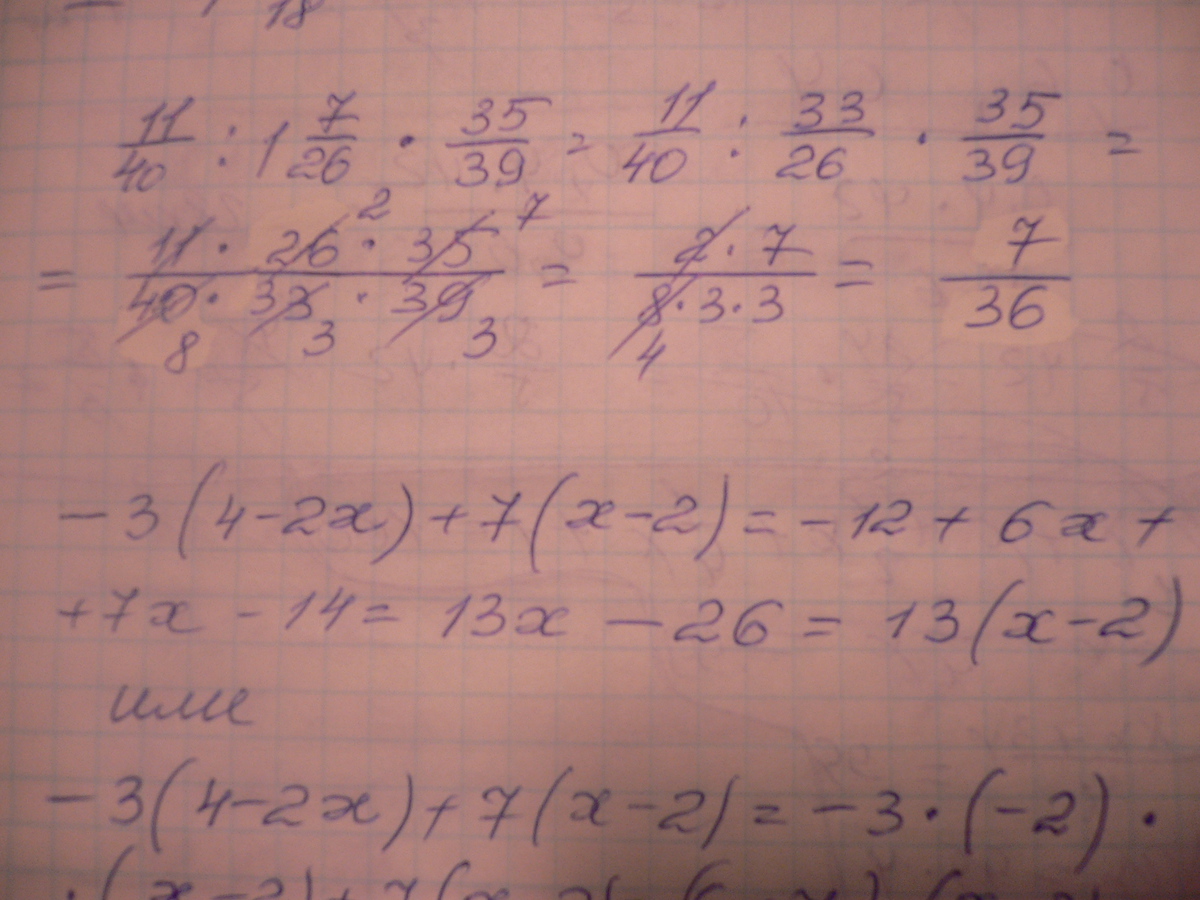 18
11/40 : 1 7/26 · 35/39 = 11/40 : 33/26 · 35/39 =
= (11 · 26 2 · 35 7)/(40 8 · 33 3 · 39 3) = (2 · 7)/(8 4 · 3 · 3) = 7/36
-3(4-2x)+7(x-2)=-12+6x+
+7x-14=13x-26=13(x-2)
или
-3(4-2x)+7(x-2)=-3·(-2)·